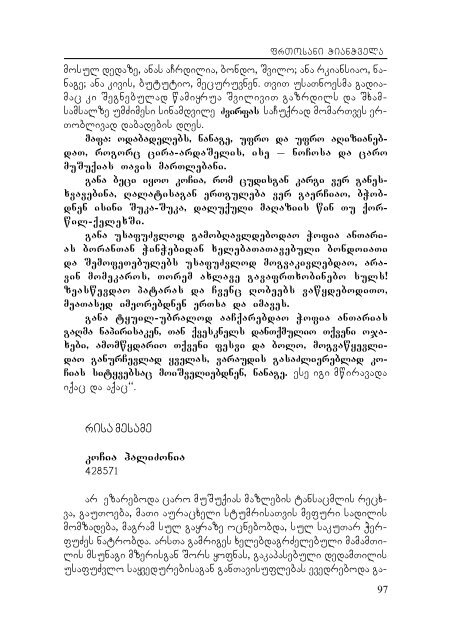 ფრთოსანი ჭიანჭველა
მოსულ დედაზე, ანას აჩრდილია, ბონდო, შვილო; ანა რკიანსიაო, ნა-
ნაგე; ანა კივის, ბუტუტიო, მეცურუვნენ. თვით უსათნოესმა გადია-
მაც კი შეგნებულად წამიყრუა შვილივით გაზრდილს და შხამ-
სამსალზე უმძიმესი სინამდვილე ძვირფას საჩუქრად მომართვეს ერ-
თობლივად დაბადების დღეს.
მაფა: ოდაბადელებს, ნანაგე, უფრო და უფრო აღიზიანებ-
დათ, როგორც ცირა-არდაშელის, ისე — ნოჩოსა და ცარო
მუშუქიას თავის მართლებანი.
განა ბეცი იყოო კოჩია, რომ ცუდისგან კარგი ვერ განეს-
ხვავებინა, ღალატისაგან ერთგულება ვერ გაერჩიაო, ბჭობ-
დნენ ისინი შუკა-შუკა, დალუქული მაღაზიის წინ თუ ქორ-
წილ-ქელეხში.
განა უსაფუძვლოდ გამობღავლდებოდაო ჭოფია ანთარი-
ას ბორანთან ჭინჭებიდან ხელებათათავებული ბონდოიათი
და შემოფეთებულებს უსაფუძვლოდ მოგვაკივლებდაო, არა-
ვინ მომეკაროს, თორემ ახლავე გავაფრთხობინებო სულს!
ზეასწევდაო პატარას და ჩვენც ღობეებს ვაწყდებოდითო,
მეათასედ იმეორებდნენ ერთსა და იმავეს.
განა ტყუილ-უბრალოდ ააჩქარებდაო ჭოფია ანთარიას
გაღმა ნაპირისაკენ, თან ქვესკნელს დანთქმულიო თქვენი ოჯა-
ხები, ამომწყდარიო თქვენი ფესვი და ბოლო, მოგვაწყევლი-
დაო განურჩევლად ყველას, ვარაუდის გასაძლიერებლად კო-
ჩიას სიტყვებსაც მოიშველიებდნენ, ნანაგე. ესე იგი მწირავადა
იქაც და აქაც“.
რისამესამე
კოჩია ჰალიძონია
428571
არ ეზარებოდა ცარო მუშუქიას მაზლების ტანსაცმლის რეცხ-
ვა, გაუთოება, მათი აურაცხელი სტუმრისათვის მეფური სადილის
მომზადება, მაგრამ სულ გაყრაზე ოცნებობდა, სულ საკუთარ ჭერ-
ფუძეს ნატრობდა. არსთა გამრიგეს ხელებდაგრძელებული მამამთი-
ლის მსუნაგი მზერისგან შორს ყოფნას, გაკაპასებული დედამთილის
უსაფუძვლო საყვედურებისაგან განთავისუფლებას ევედრებოდა გა-
97